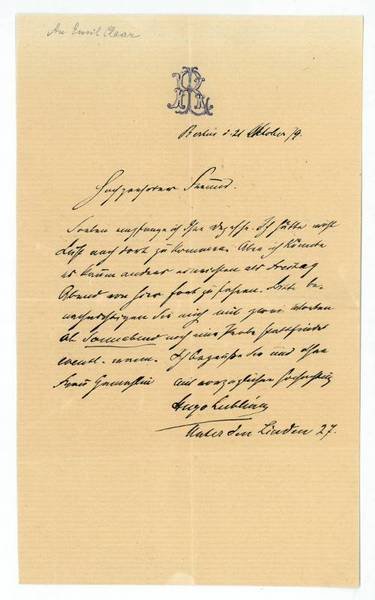 An Emil Claar
Berlin d. 21 Oktober 79.
Hochgeehrter Freund.
Soeben empfange ich Ihre Depesche. Ich hätte wohl
Lust nach dort zu kommen. Aber ich könnte
es kaum anders ermöglichen als Freitag
Abend von hier fort zu fahren. Bitte be-
nachrichtigen Sie mich mit zwei Worten
ob Sonnabend noch eine Probe stattfindet
event. wann. Ich begrüße Sie und Ihre
Frau Gemahlin mit vorzüglicher Hochachtung
Hugo Lubliner
Unter den Linden 27.